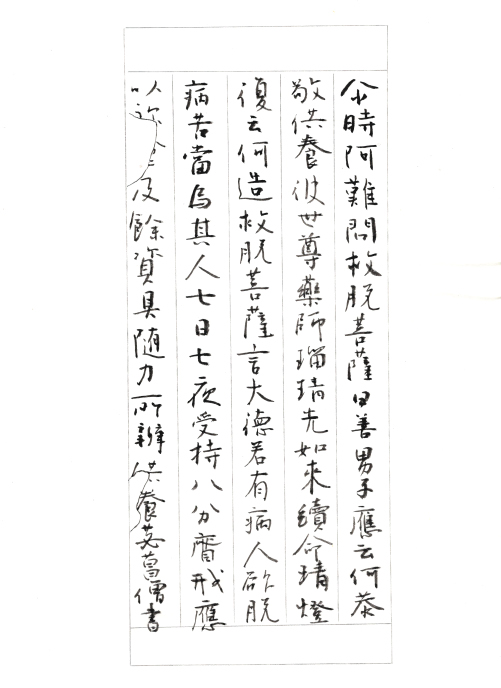 尒時阿難問救脫菩薩曰善男子應云何恭
敬供養彼世尊藥師瑠璃光如來續命幡燈
復云何造救脫菩薩言大德若有病人欲脫
病苦當爲其人七日七夜受持八分齋戒應
以飲食及餘資具随力所辦供養苾蒭僧晝